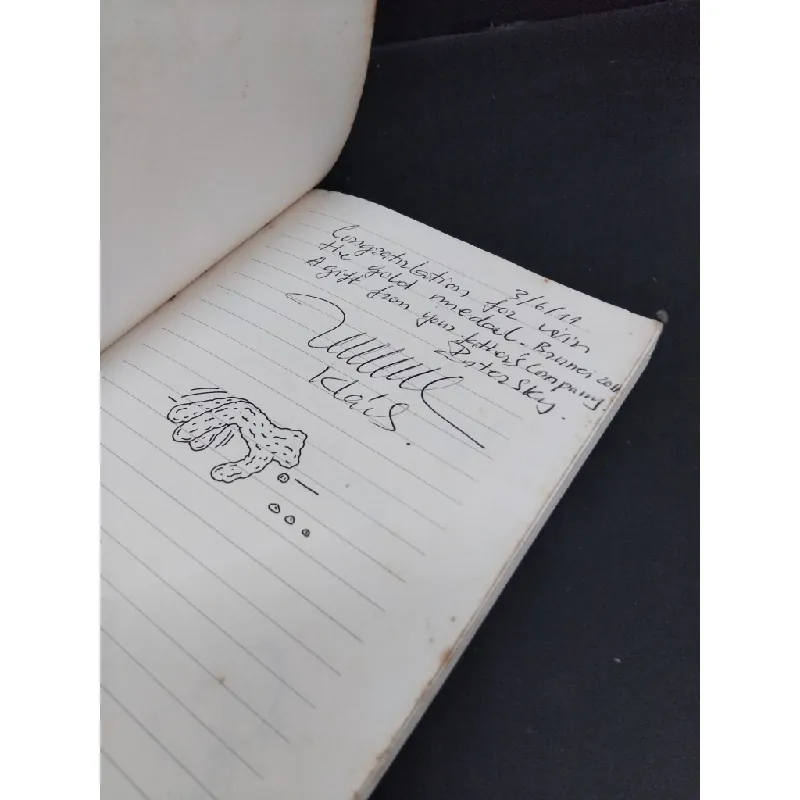 3/6/11
Congratulation for win
the gold medal. Brunei 2011
A gift from your father's company
InterSky.
Klaus.